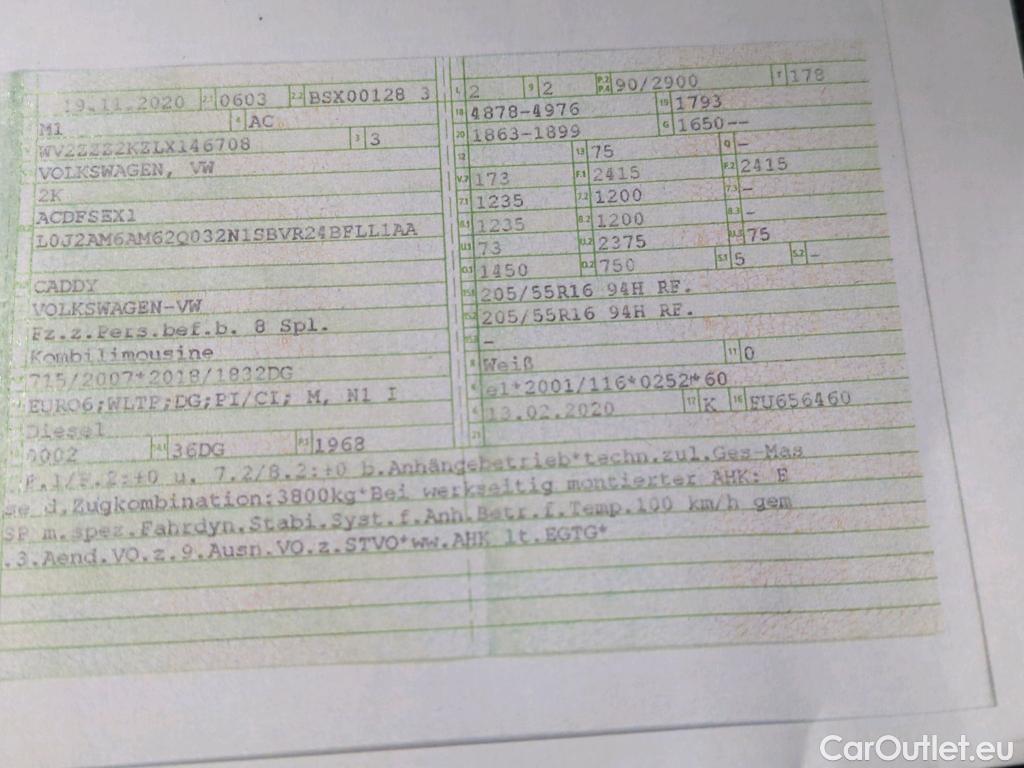 19.11.2020 2.1 0603 2.2 BSX00128 3
M1 4 AC
WV2ZZZ2KZLX146708 3 3
VOLKSWAGEN, VW
2K
ACDFSEX1
L0J2AM6AM62Q032N1SBVR24BFLL1AA
CADDY
VOLKSWAGEN-VW
Fz.z.Pers.bef.b. 8 Spl.
Kombilimousine
715/2007*2018/1832DG
EURO6;WLTP;DG;PI/CI; M, N1 I
Diesel
0002 14.1 36DG P.1 1968
L 2 9 2 P.2 P.4 90/2900 T 178
18 4878-4976 19 1793
20 1863-1899 G 1650--
12 13 75 Q -
V.7 173 F.1 2415 F.2 2415
7.1 1235 7.2 1200 7.3 -
8.1 1235 8.2 1200 8.3 -
U.1 73 U.2 2375 U.3 75
O.1 1450 O.2 750 S.1 5 S.2 -
15.1 205/55R16 94H RF.
15.2 205/55R16 94H RF.
15.3 -
R Weiß 11 0
K e1*2001/116*0252*60
6 13.02.2020 17 K 16 FU656460
21
F.1/F.2:±0 u. 7.2/8.2:±0 b.Anhängebetrieb*techn.zul.Ges-Mas
se d.Zugkombination:3800kg*Bei werkseitig montierter AHK: E
SP m.spez.Fahrdyn.Stabi.Syst.f.Anh.Betr.f.Temp.100 km/h gem
.3.Aend.VO.z.9.Ausn.VO.z.STVO*ww.AHK lt.EGTG*
CarOutlet.eu